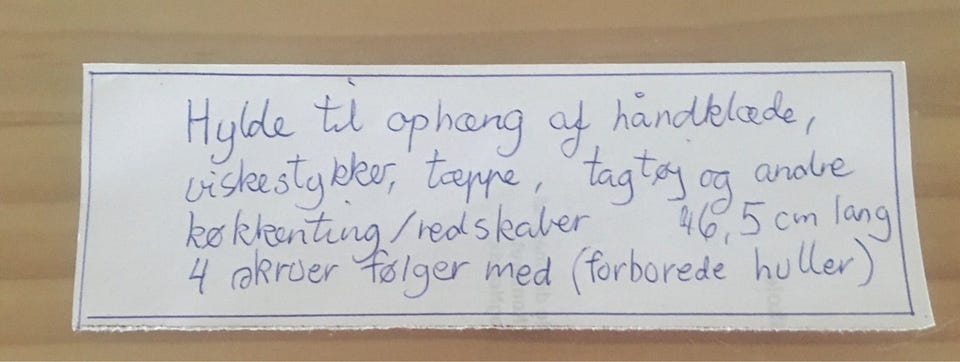 Hylde til ophæng af håndklæde,
viskestykker, tæppe, tagtøj og andre
køkkenting/redskaber 46,5 cm lang
4 skruer følger med (forborede huller)